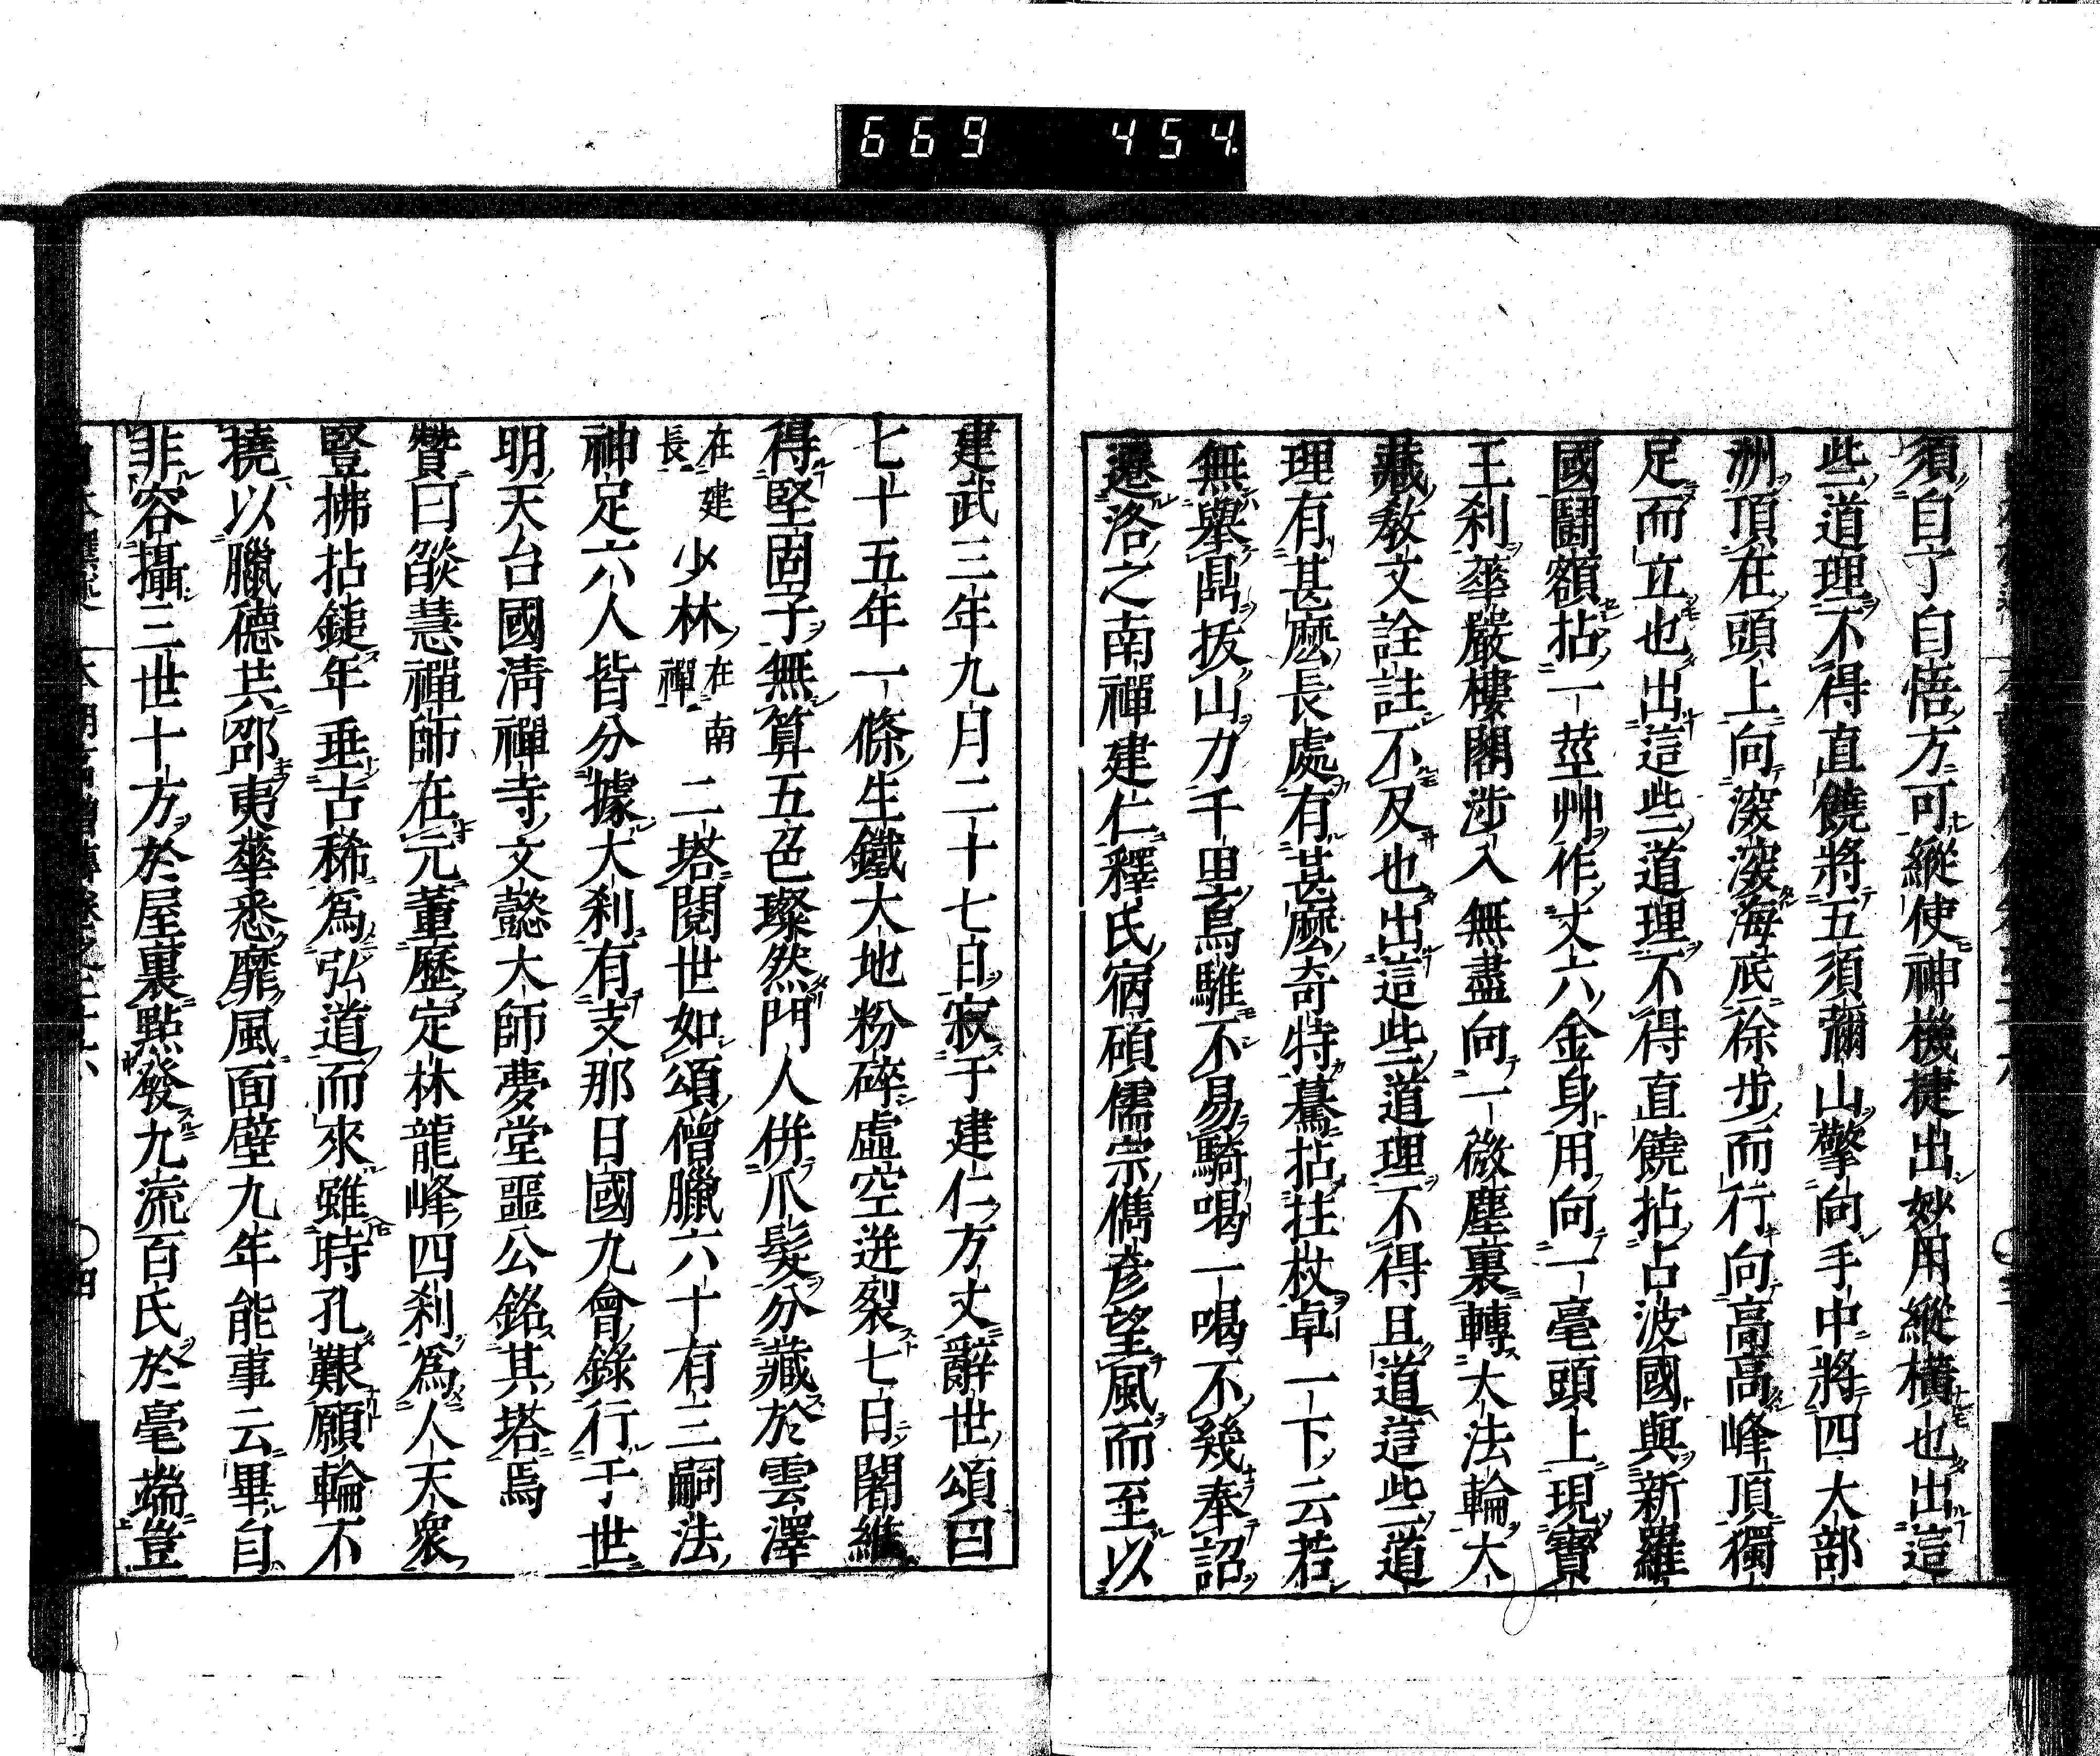 669 454.
須自了自悟方可縱使神機捷出妙用縱橫也出這
些道理不得直饒將五須彌山擎向手中將四大部
洲頂在頭上向深深海底徐步而行向高高峰頂獨
足而立也出這些道理不得直饒拈占波國與新羅
國鬪額拈一莖艸作丈六金身用向一毫頭上現寶
王刹華嚴樓閣涉入無盡向一微塵裏轉大法輪大
藏敎文詮註不及也出這些道理不得且道這些道
理有甚麽長處有甚麽奇特驀拈拄杖卓一下云若
無舉鼎拔山力千里烏騅不易騎喝一喝不幾奉詔
還洛之南禪建仁釋氏宿碩儒宗儁彦望風而至以
建武三年九月二十七日寂于建仁方丈辭世頌曰
七十五年一條生鐵大地粉碎虛空迸裂七日闍維
得堅固子無算五色璨然門人併爪髮分藏於雲澤
在建長少林在南禪二塔閱世如頌僧臘六十有三嗣法
神足六人皆分據大刹有支那日國九會錄行于世
明天台國淸禪寺文懿大師夢堂噩公銘其塔焉
贊曰燄慧禪師在元董歷定林龍峰四刹爲人天衆
豎拂拈鎚年垂古稀爲弘道而來雖時孔艱願輪不
撓以臘德共邵夷華悉靡風面壁九年能事云畢自
非容攝三世十方於屋裏點發九流百氏於毫端豈